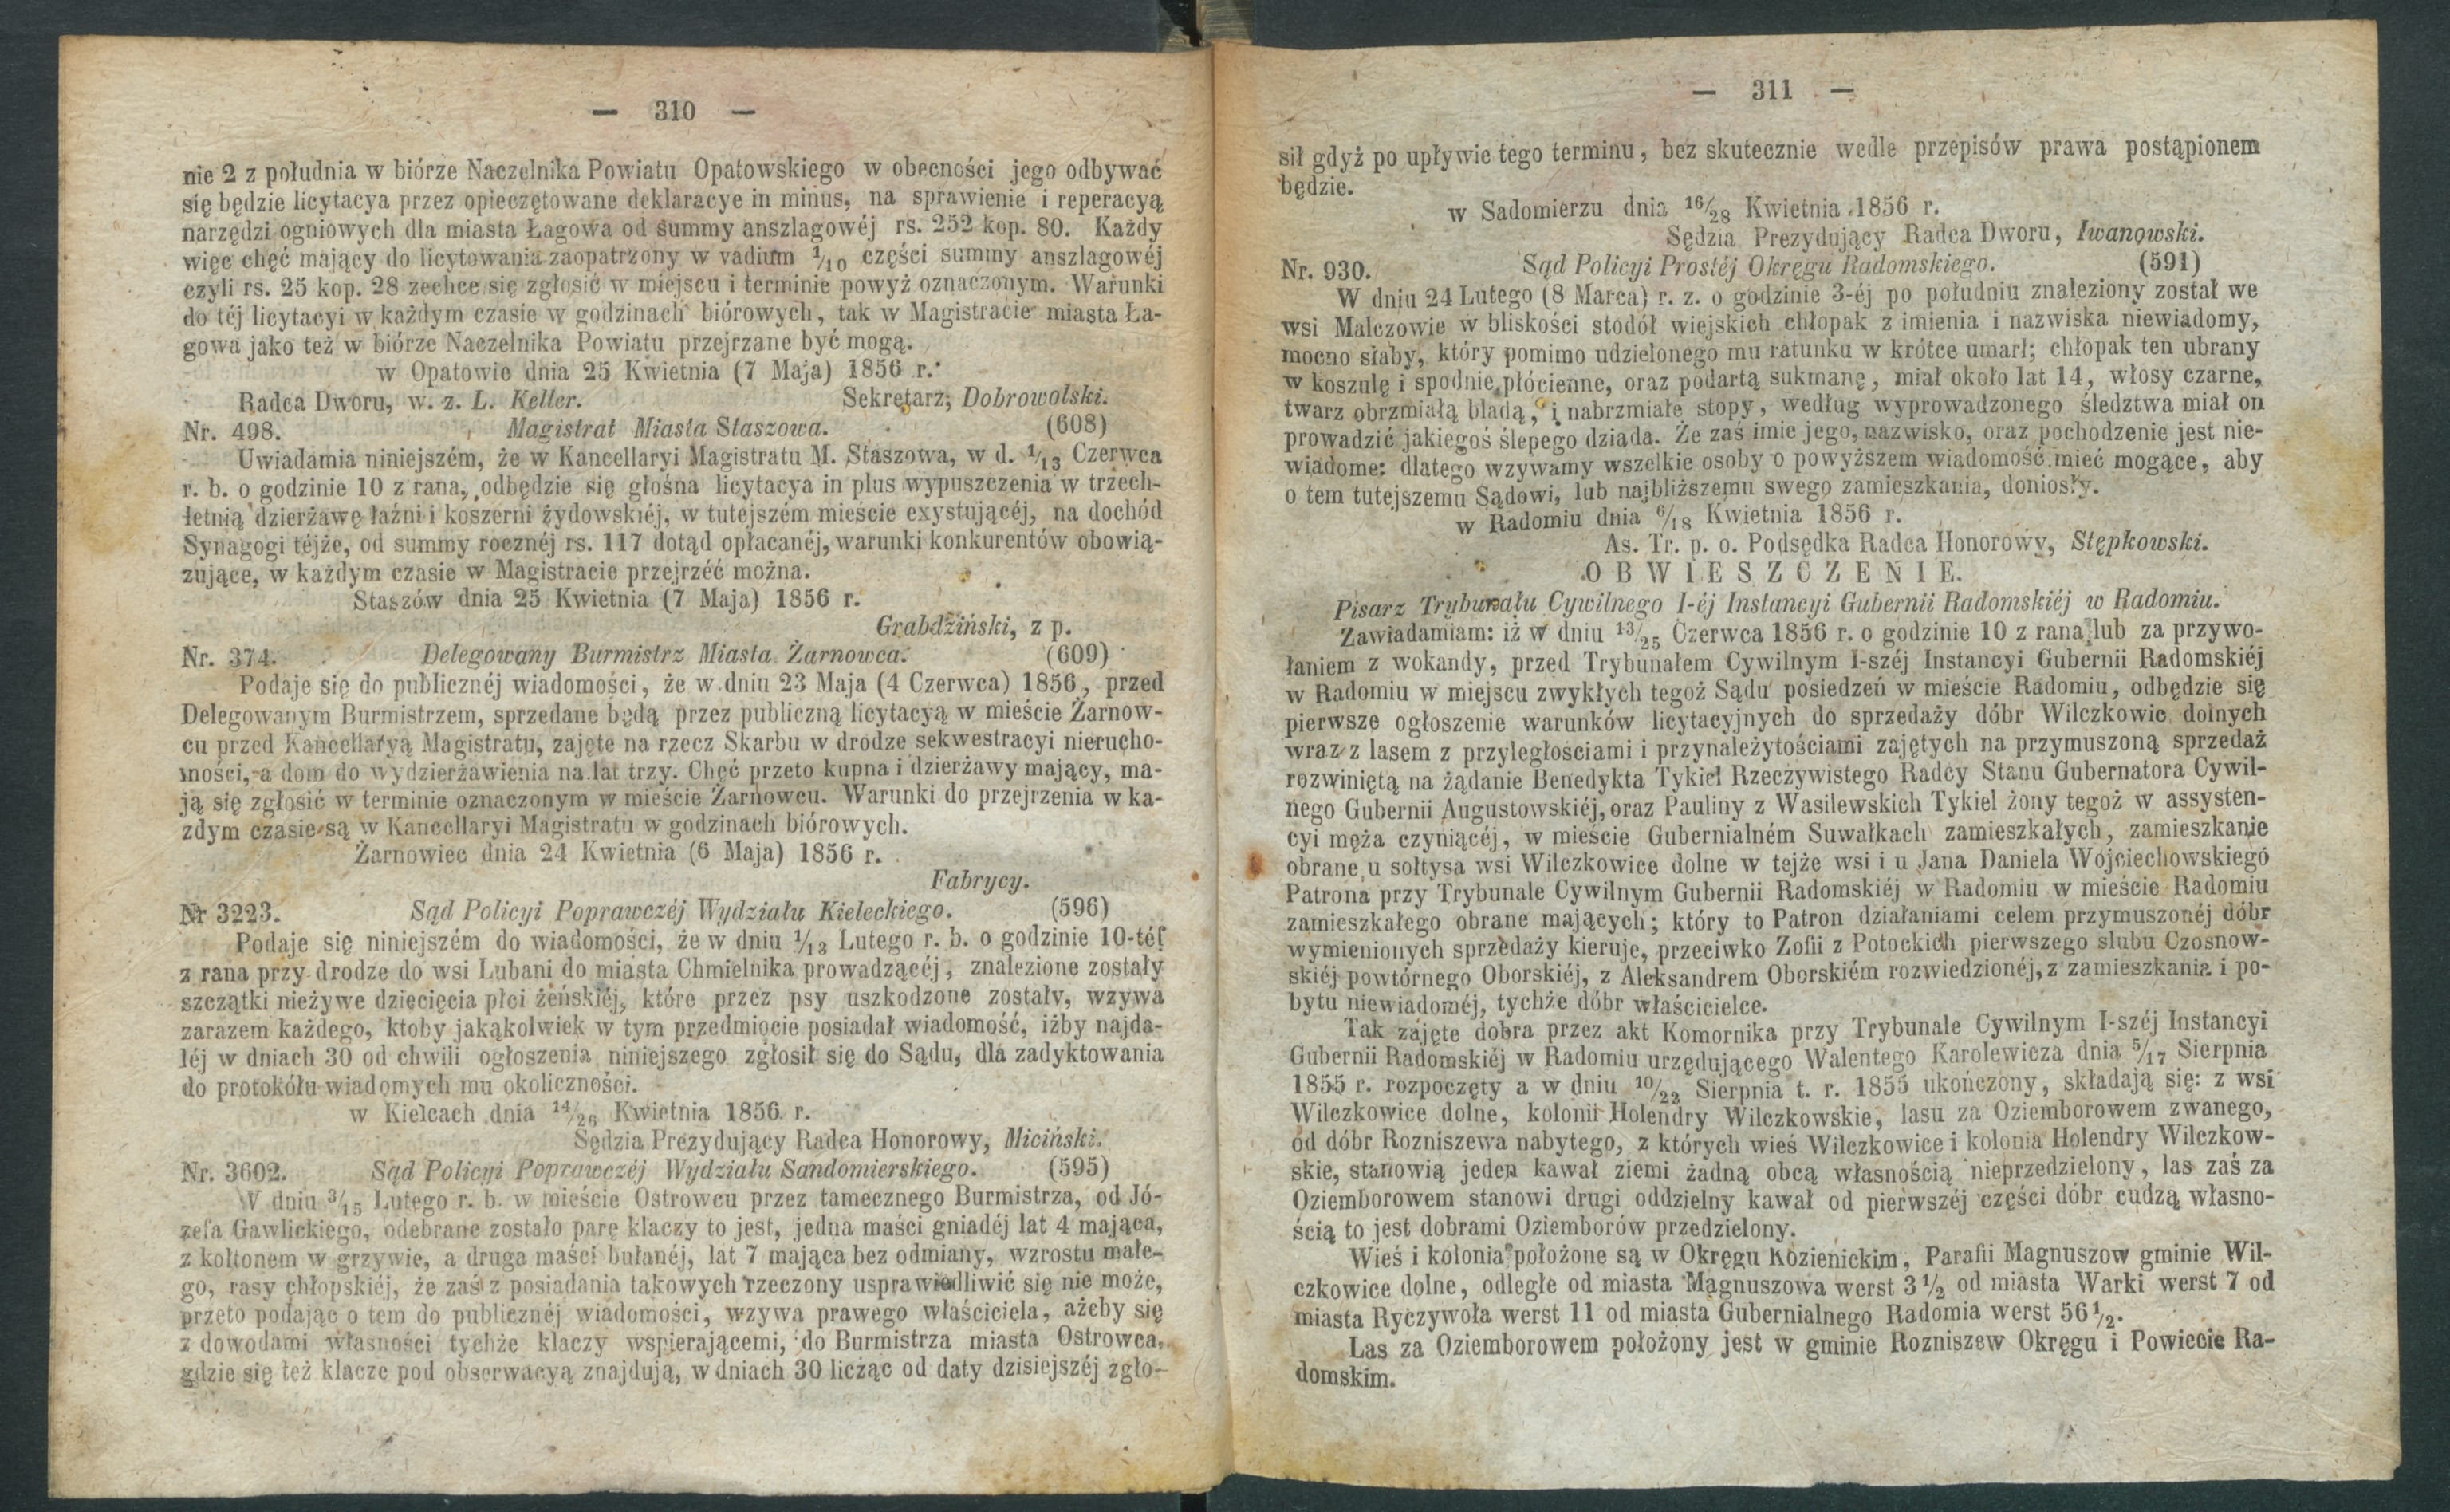 — 310 —
nie 2 z południa w biórze Naczelnika Powiatu Opatowskiego w obecności jego odbywać
się będzie licytacya przez opieczętowane deklaracye in minus, na sprawienie i reperacyą
narzędzi ogniowych dla miasta Łagowa od summy anszlagowéj rs. 252 kop. 80. Każdy
więc chęć mający do licytowania zaopatrzony w vadium 1/10 części summy anszlagowéj
czyli rs. 25 kop. 28 zechce się zgłosić w miejscu i terminie powyż oznaczonym. Warunki
do téj licytacyi w każdym czasie w godzinach biórowych, tak w Magistracie miasta Ła-
gowa jako też w biórze Naczelnika Powiatu przejrzane być mogą.
w Opatowie dnia 25 Kwietnia (7 Maja) 1856 r.
Radca Dworu, w. z. L. Keller. Sekretarz, Dobrowolski.
Nr. 498. Magistrat Miasta Staszowa. (608)
Uwiadamia niniejszém, że w Kancellaryi Magistratu M. Staszowa, w d. 1/13 Czerwca
r. b. o godzinie 10 z rana, odbędzie się głośna licytacya in plus wypuszczenia w trzech-
letnią dzierżawę łaźni i koszerni żydowskiéj, w tutejszém mieście exystującéj, na dochód
Synagogi téjże, od summy rocznéj rs. 117 dotąd opłacanéj, warunki konkurentów obowią-
zujące, w każdym czasie w Magistracie przejrzéć można.
Staszów dnia 25 Kwietnia (7 Maja) 1856 r.
Grabdziński, z p.
Nr. 374. Delegowany Burmistrz Miasta Żarnowca. (609)
Podaje się do publicznéj wiadomości, że w dniu 23 Maja (4 Czerwca) 1856, przed
Delegowanym Burmistrzem, sprzedane będą przez publiczną licytacyą w mieście Żarnow-
cu przed Kancellaryą Magistratu, zajęte na rzecz Skarbu w drodze sekwestracyi nierucho-
mości, a dom do wydzierżawienia na lat trzy. Chęć przeto kupna i dzierżawy mający, ma-
ją się zgłosić w terminie oznaczonym w mieście Żarnowcu. Warunki do przejrzenia w ka-
zdym czasie są w Kancellaryi Magistratu w godzinach biórowych.
Żarnowiec dnia 24 Kwietnia (6 Maja) 1856 r.
Fabrycy.
Nr 3223. Sąd Policyi Poprawczéj Wydziału Kieleckiego. (596)
Podaje się niniejszém do wiadomości, że w dniu 1/13 Lutego r. b. o godzinie 10-téj
z rana przy drodze do wsi Lubani do miasta Chmielnika prowadzącéj, znalezione zostały
szczątki nieżywe dziecięcia płci żeńskiéj, które przez psy uszkodzone zostały, wzywa
zarazem każdego, ktoby jakąkolwiek w tym przedmiocie posiadał wiadomość, iżby najda-
léj w dniach 30 od chwili ogłoszenia niniejszego zgłosił się do Sądu, dla zadyktowania
do protokółu wiadomych mu okoliczności.
w Kielcach dnia 14/26 Kwietnia 1856 r.
Sędzia Prezydujący Radca Honorowy, Miciński.
Nr. 3602. Sąd Policyi Poprawczéj Wydziału Sandomierskiego. (595)
W dniu 3/15 Lutego r. b. w mieście Ostrowcu przez tamecznego Burmistrza, od Jó-
zefa Gawlickiego, odebrane zostało parę klaczy to jest, jedna maści gniadéj lat 4 mająca,
z kołtonem w grzywie, a druga maści bułanéj, lat 7 mająca bez odmiany, wzrostu małe-
go, rasy chłopskiéj, że zaś z posiadania takowych rzeczony usprawiedliwić się nie może,
przeto podając o tem do publicznéj wiadomości, wzywa prawego właściciela, ażeby się
z dowodami własności tychże klaczy wspierającemi, do Burmistrza miasta Ostrowca,
gdzie się też klacze pod obserwacyą znajdują, w dniach 30 licząc od daty dzisiejszéj zgło-
— 311 —
sił gdyż po upływie tego terminu, bez skutecznie wedle przepisów prawa postąpionem
będzie.
w Sadomierzu dnia 16/28 Kwietnia 1856 r.
Sędzia Prezydujący Radca Dworu, Iwanowski.
Nr. 930. Sąd Policyi Prostéj Okręgu Radomskiego. (591)
W dniu 24 Lutego (8 Marca) r. z. o godzinie 3-éj po południu znaleziony został we
wsi Malczowie w bliskości stodół wiejskich chłopak z imienia i nazwiska niewiadomy,
mocno słaby, który pomimo udzielonego mu ratunku w krótce umarł; chłopak ten ubrany
w koszulę i spodnie płócienne, oraz podartą sukmanę, miał około lat 14, włosy czarne,
twarz obrzmiałą bladą, i nabrzmiałe stopy, według wyprowadzonego śledztwa miał on
prowadzić jakiegoś ślepego dziada. Że zaś imie jego, nazwisko, oraz pochodzenie jest nie-
wiadome: dlatego wzywamy wszelkie osoby o powyższem wiadomość mieć mogące, aby
o tem tutejszemu Sądowi, lub najbliższemu swego zamieszkania, doniosły.
w Radomiu dnia 6/18 Kwietnia 1856 r.
As. Tr. p. o. Podsędka Radca Honorowy, Stępkowski.
OBWIESZCZENIE.
Pisarz Trybunału Cywilnego I-éj Instancyi Gubernii Radomskiéj w Radomiu.
Zawiadamiam: iż w dniu 13/25 Czerwca 1856 r. o godzinie 10 z rana lub za przywo-
łaniem z wokandy, przed Trybunałem Cywilnym I-széj Instancyi Gubernii Radomskiéj
w Radomiu w miejscu zwykłych tegoż Sądu posiedzeń w mieście Radomiu, odbędzie się
pierwsze ogłoszenie warunków licytacyjnych do sprzedaży dóbr Wilczkowic dolnych
wraz z lasem z przyległościami i przynależytościami zajętych na przymuszoną sprzedaż
rozwiniętą na żądanie Benedykta Tykiel Rzeczywistego Radcy Stanu Gubernatora Cywil-
nego Gubernii Augustowskiéj, oraz Pauliny z Wasilewskich Tykiel żony tegoż w assysten-
cyi męża czyniącéj, w mieście Gubernialném Suwałkach zamieszkałych, zamieszkanie
obrane u sołtysa wsi Wilczkowice dolne w tejże wsi i u Jana Daniela Wojciechowskiego
Patrona przy Trybunale Cywilnym Gubernii Radomskiéj w Radomiu w mieście Radomiu
zamieszkałego obrane mających; który to Patron działaniami celem przymuszonéj dóbr
wymienionych sprzedaży kieruje, przeciwko Zofii z Potockich pierwszego slubu Czosnow-
skiéj powtórnego Oborskiéj, z Aleksandrem Oborskiém rozwiedzionéj, z zamieszkania i po-
bytu niewiadoméj, tychże dóbr właścicielce.
Tak zajęte dobra przez akt Komornika przy Trybunale Cywilnym I-széj Instancyi
Gubernii Radomskiéj w Radomiu urzędującego Walentego Karolewicza dnia 5/17 Sierpnia
1855 r. rozpoczęty a w dniu 10/22 Sierpnia t. r. 1855 ukończony, składają się: z wsi
Wilczkowice dolne, kolonii Holendry Wilczkowskie, lasu za Oziemborowem zwanego,
od dóbr Rozniszewa nabytego, z których wieś Wilczkowice i kolonia Holendry Wilczkow-
skie, stanowią jeden kawał ziemi żadną obcą własnością nieprzedzielony, las zaś za
Oziemborowem stanowi drugi oddzielny kawał od pierwszéj części dóbr cudzą własno-
ścią to jest dobrami Oziemborów przedzielony.
Wieś i kolonia położone są w Okręgu Kozienickim, Parafii Magnuszow gminie Wil-
czkowice dolne, odległe od miasta Magnuszowa werst 3 1/2 od miasta Warki werst 7 od
miasta Ryczywoła werst 11 od miasta Gubernialnego Radomia werst 56 1/2.
Las za Oziemborowem położony jest w gminie Rozniszew Okręgu i Powiecie Ra-
domskim.